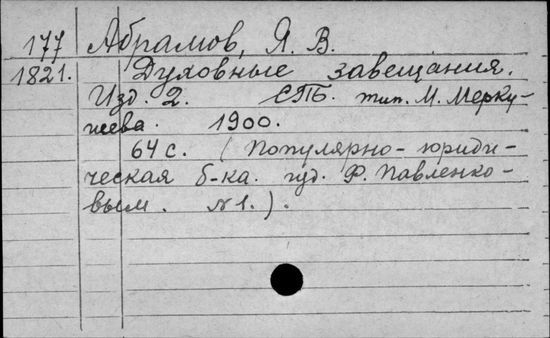 177 Абрамов, Я. В.
1821. Духовные завещания.
Изд. 2. СПБ. тип. М. Мерку-
шева. 1900.
64 с. (Популярно-юриди-
ческая б-ка. изд. Ф. Павленко-
вым. №1.).